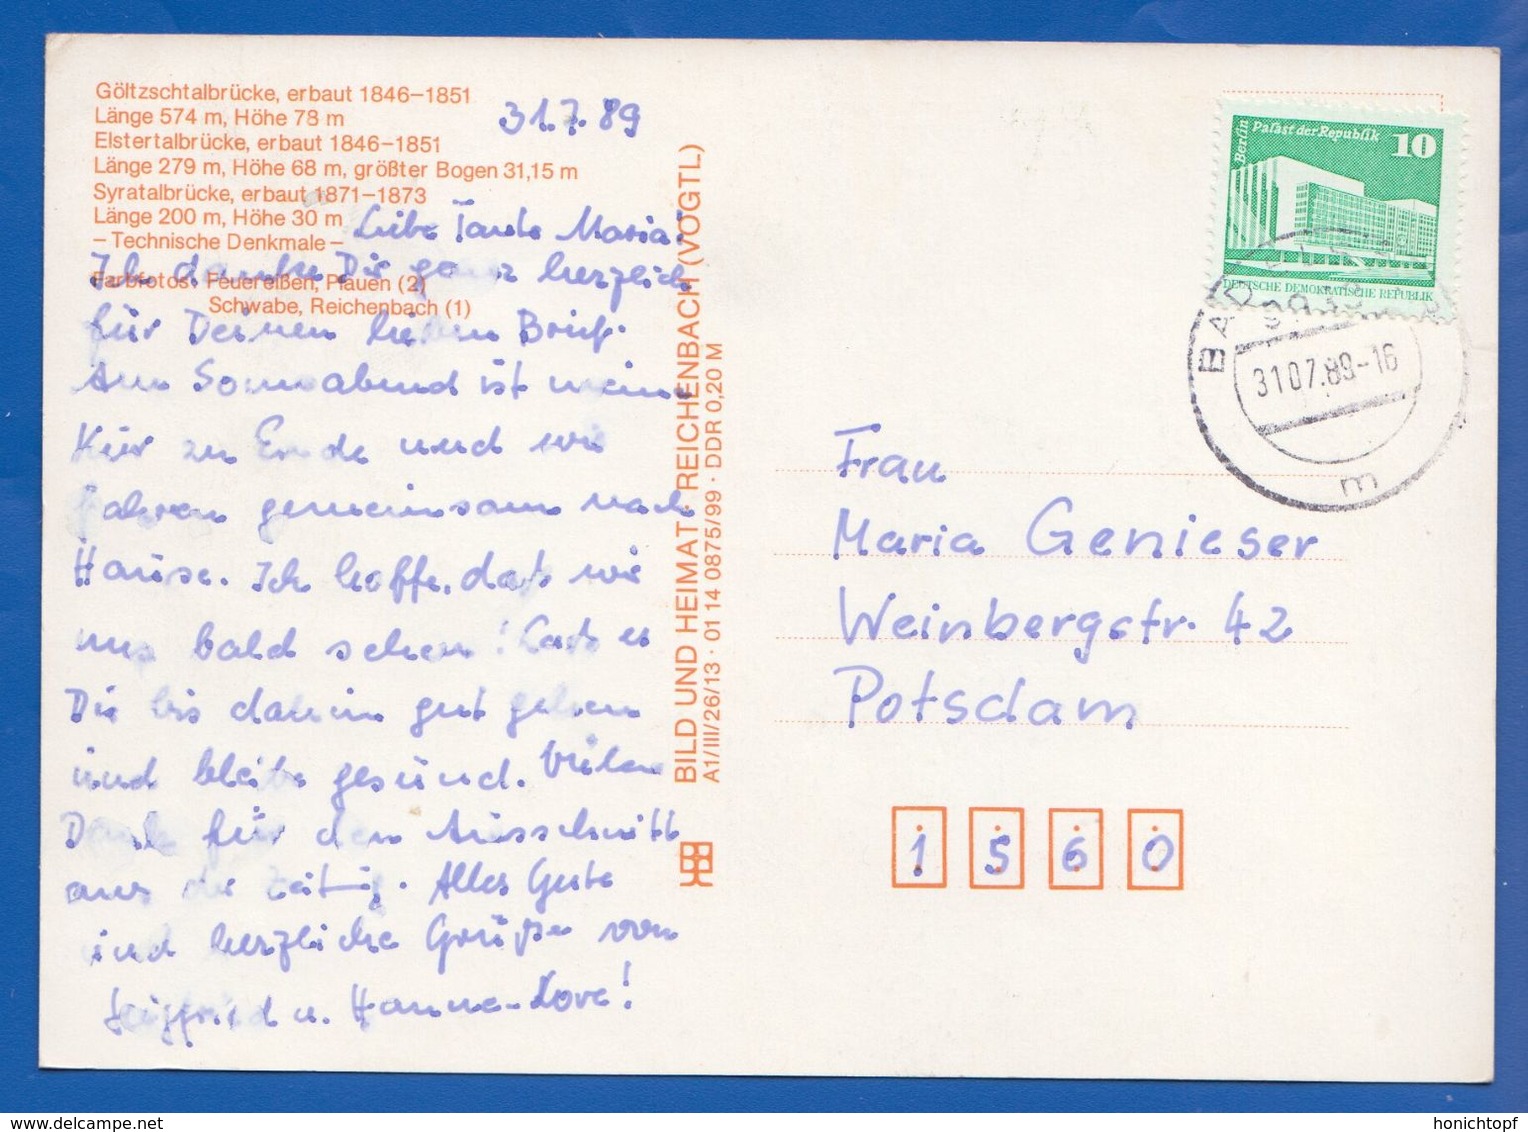 Göltzschtalbrücke, erbaut 1846–1851
Länge 574 m, Höhe 78 m
Elstertalbrücke, erbaut 1846–1851
Länge 279 m, Höhe 68 m, größter Bogen 31,15 m
Syratalbrücke, erbaut 1871–1873
Länge 200 m, Höhe 30 m
– Technische Denkmale –
Farbfotos: Feuereißen, Plauen (2)
Schwabe, Reichenbach (1)
31.7.89
Liebe Tante Maria!
Ich danke Dir ganz herzlich
für Deinen lieben Brief.
Am Sonnabend ist meine
Kur zu Ende und wir
fahren gemeinsam nach
Hause. Ich hoffe, daß wir
uns bald sehen! Laß es
Dir bis dahin gut gehen
und bleibe gesund. Vielen
Dank für den Ausschnitt
aus der Zeitung. Alles Gute
und herzliche Grüße von
Siegfried u. Hanne-Lore!
BILD UND HEIMAT · REICHENBACH (VOGTL)
A1/III/26/13 · 01 14 0875/99 · DDR 0,20 M
Berlin
Palast der Republik
10
DEUTSCHE DEMOKRATISCHE REPUBLIK
BAD
9933
31.07.89-16
m
Frau
Maria Genieser
Weinbergstr. 42
Potsdam
1 5 6 0
www.delcampe.net
honichtopf